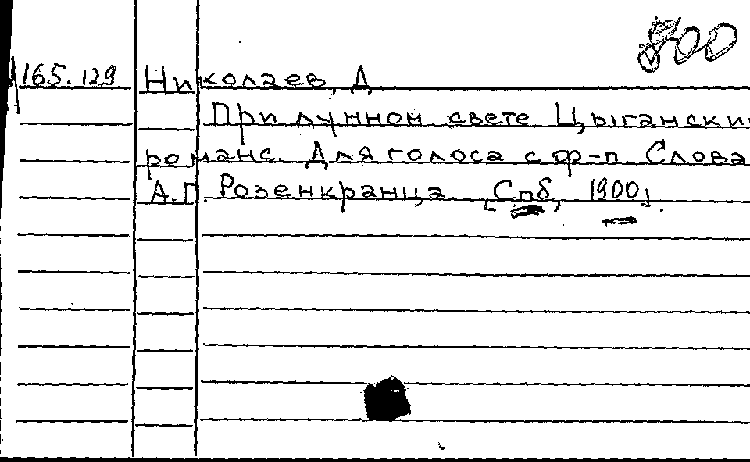 800
165.129 Николаев, Д.
При лунном свете Цыгански
романс. Для голоса с ф-п Слова
А.Г. Розенкранца [Спб, 1900].